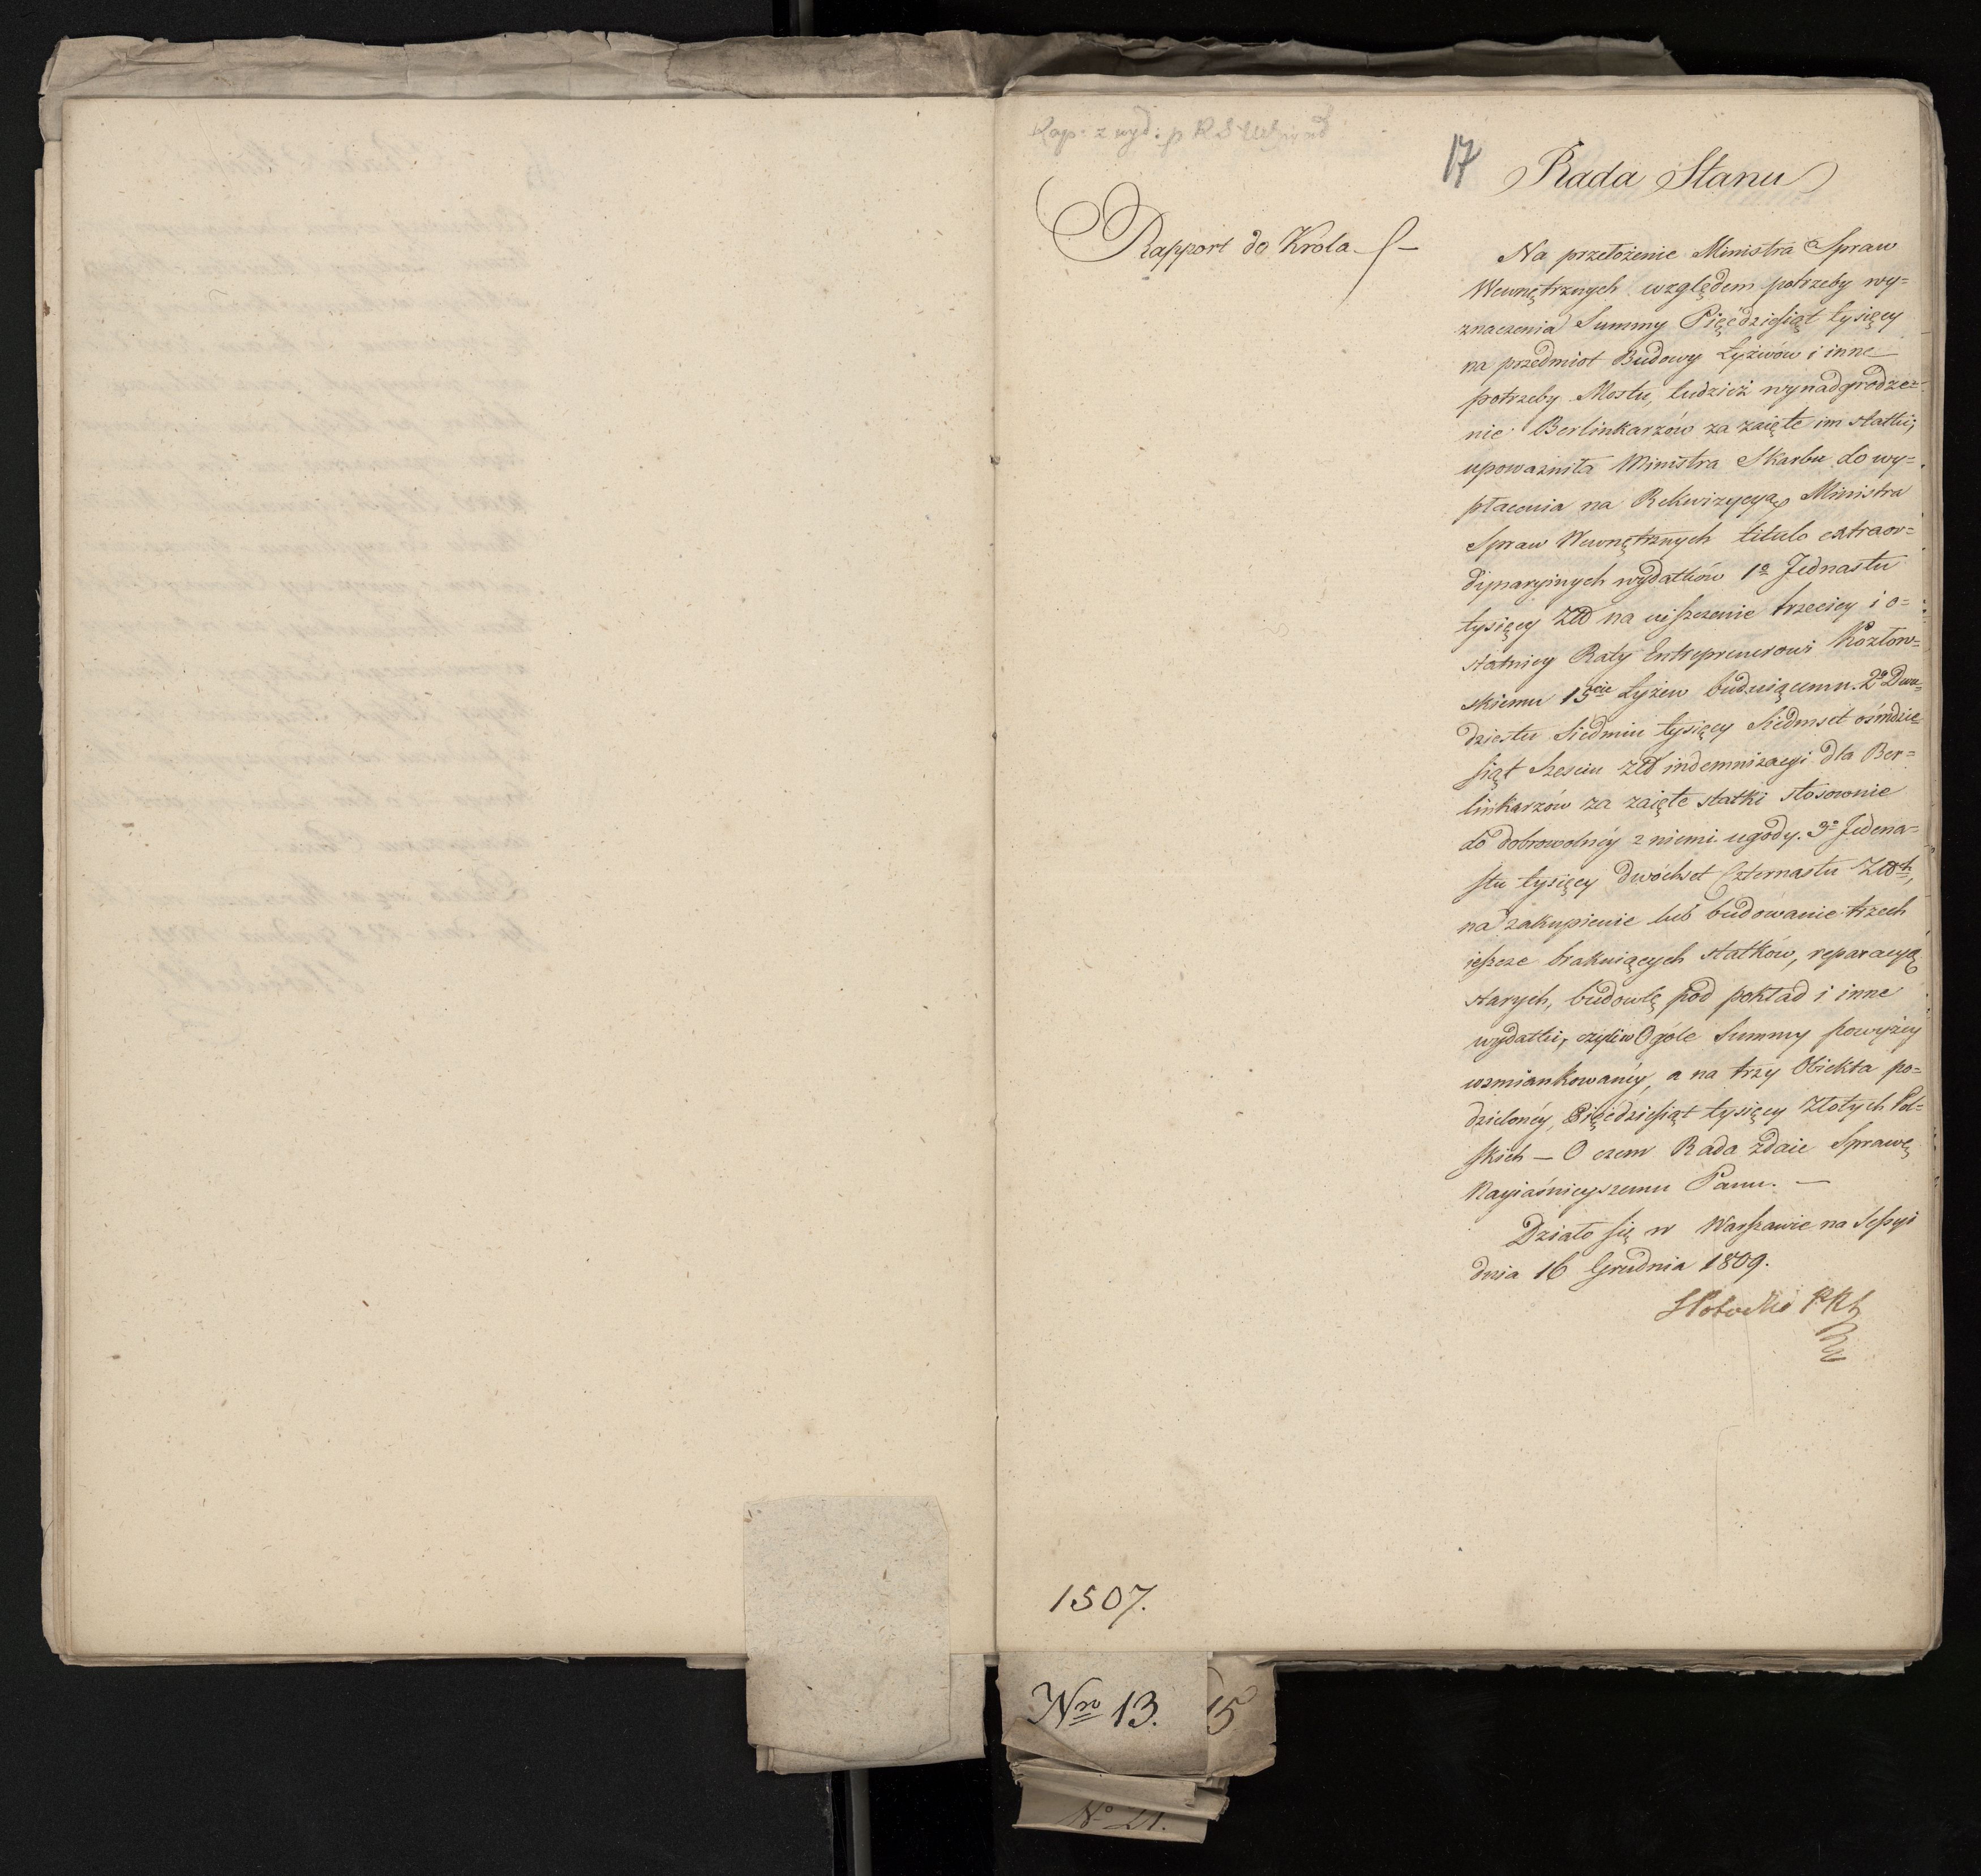 17
Rada Stanu
Rapport do Króla
Na przełożenie Ministra Spraw
Wewnętrznych względem potrzeby wy=
znaczenia Summy Pięćdziesiąt tysięcy
na przedmiot Budowy Łyżwów i inne
potrzeby Mostu, tudzież wynadgrodze=
nie Berlinkarzów za zaięte im statki;
upoważniła Ministra Skarbu do wy=
płacenia na Rekwizycyą Ministra
Spraw Wewnętrznych titulo extraor=
dynaryinych wydatków 1º Jednastu
tysięcy Zło na uiszczenie trzeciey i o=
statniey Raty Entreprenerowi Kozłow=
skiemu 15cie Łyżew buduiącemu. 2º Dwu=
dziestu Siedmiu tysięcy Siedmset ośmdzie
siąt Sześciu Zło indemnizacyi dla Ber=
linkarzów za zaięte statki stosownie
do dobrowolnéy z niemi ugody. 3º Jedena=
stu tysięcy dwóchset Czternastu Złoch,
na zakupienie lub budowanie trzech
ieszcze brakuiących statków, reparacyą
starych, budowlę pod pokład i inne
wydatki, czyli w Ogóle Summy powyżey
wzmiankowanéy, a na trzy Obiekta po=
dzielonéy, Pięćdziesiąt tysięcy Złotych Pol=
skich — O czem Rada zdaie Sprawę
Nayiaśnieyszemu Panu. —
Działo się w Warszawie na Sessyi
dnia 16 Grudnia 1809.
SPotocki
1507.
Nro 13.
15
No 21.